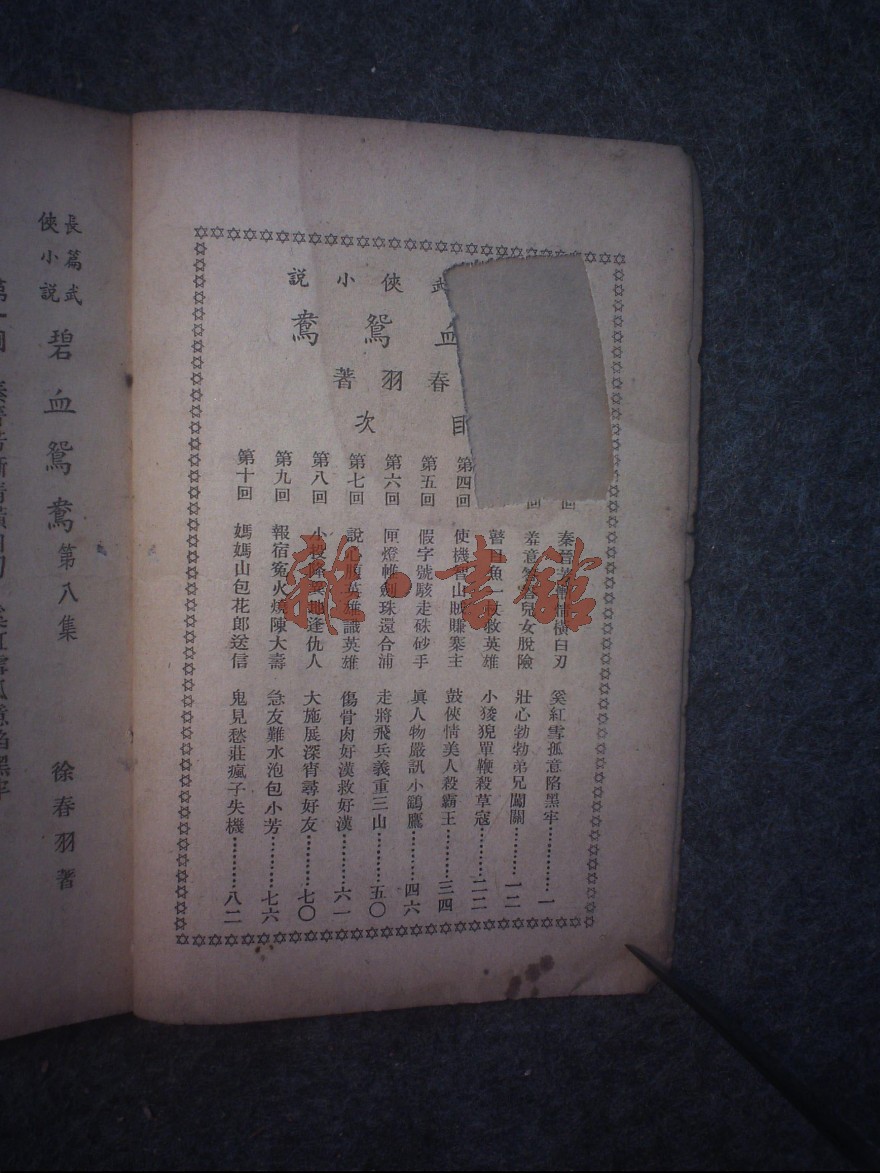 武俠小說
血鴛鴦
春羽著
目次
回 秦晉 情橫白刃 奚紅雪孤意陷黑牢…………一
回 羞意 兒女脫險 壯心勃勃弟兄闖關…………一二
瞽目魚一 救英雄 小狻猊單鞭殺草寇…………二二
第四回 使機智山賊賺寨主 鼓俠情美人殺霸王…………三四
第五回 假字號駭走硃砂手 眞人物嚴訊小鷂鷹…………四六
第六回 匣燈帷劍珠還合浦 走將飛兵義重三山…………五〇
第七回 說心 英雄識英雄 傷骨肉好漢救好漢…………六一
第八回 小 地逢仇人 大施展深宵尋好友…………七〇
第九回 報宿冤火燒陳大壽 急友難水泡包小芳…………七六
第十回 媽媽山包花郎送信 鬼見愁莊瘋子失機…………八二
雜·書館
長篇武俠小說 碧血鴛鴦 第八集 徐春羽著